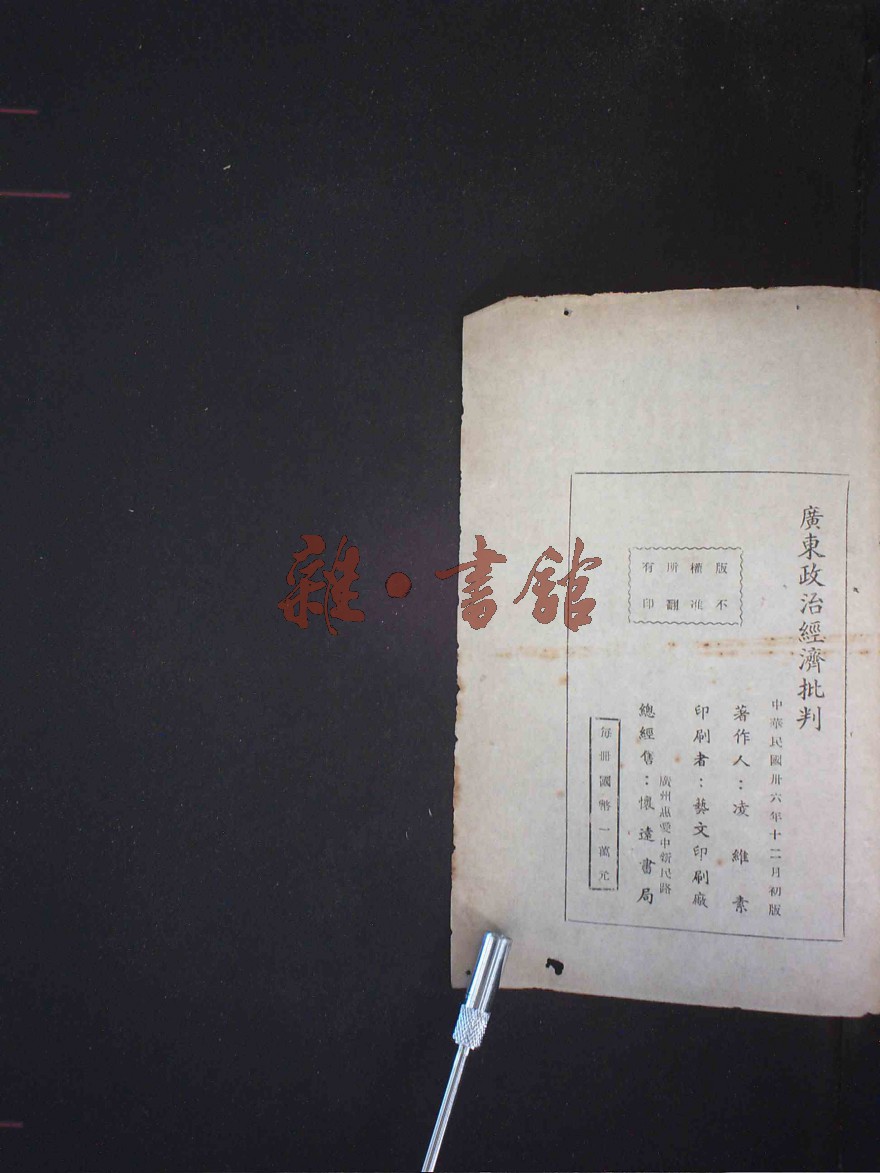 廣東政治經濟批判
中華民國卅六年十二月初版
著作人：凌維素
印刷者：藝文印刷廠
廣州惠愛中新民路
總經售：懷遠書局
每冊國幣一萬元
版權所有
不准翻印
雜·書館